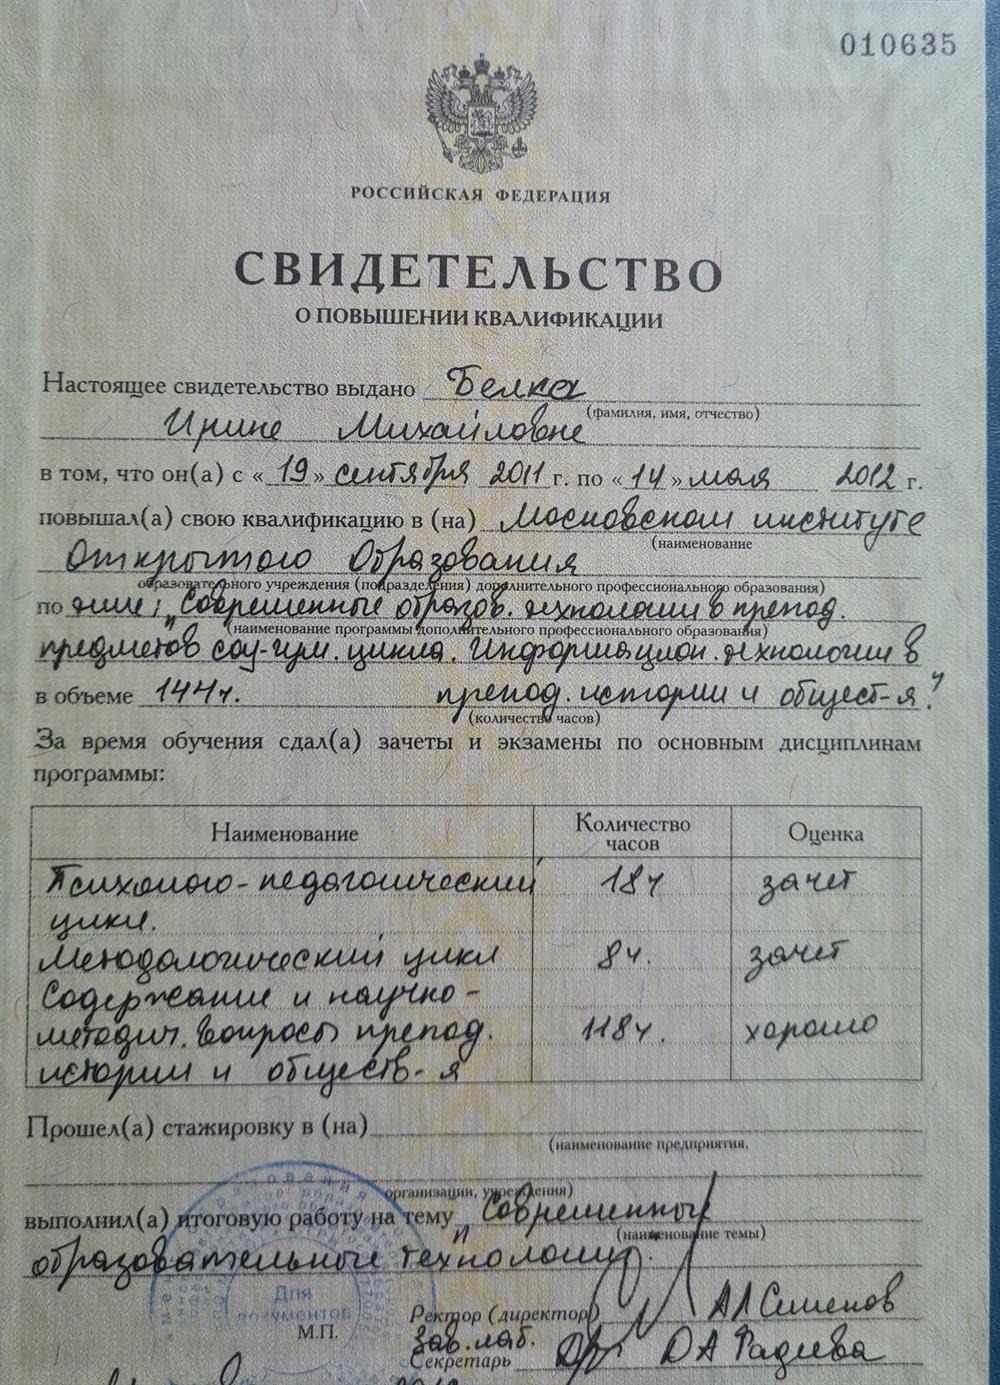 010635
РОССИЙСКАЯ ФЕДЕРАЦИЯ
СВИДЕТЕЛЬСТВО
О ПОВЫШЕНИИ КВАЛИФИКАЦИИ
Настоящее свидетельство выдано Белка
(фамилия, имя, отчество)
Ирине Михайловне
в том, что он(а) с «19» сентября 2011 г. по «14» мая 2012 г.
повышал(а) свою квалификацию в (на) Московском институте
(наименование
Открытого Образования
образовательного учреждения (подразделения) дополнительного профессионального образования)
по теме: "Современные образов. технологии в препод.
(наименование программы дополнительного профессионального образования)
предметов соц-гум. цикла. Информацион. технологии в
в объеме 144ч. препод. истории и обществ-я."
(количество часов)
За время обучения сдал(а) зачеты и экзамены по основным дисциплинам
программы:
Наименование Количество часов Оценка
Психолого-педагогический 18ч зачет
цикл.
Методологический цикл 8ч. зачет
Содержание и научно-
методич. вопросы препод. 118ч. хорошо
истории и обществ-я
Прошел(а) стажировку в (на)
(наименование предприятия,
организации, учреждения)
выполнил(а) итоговую работу на тему "Современные
(наименование темы)
образовательные технологии".
Для
документов
М.П.
Ректор (директор) А Л Семенов
Зав. лаб.
Секретарь О А Фадеева